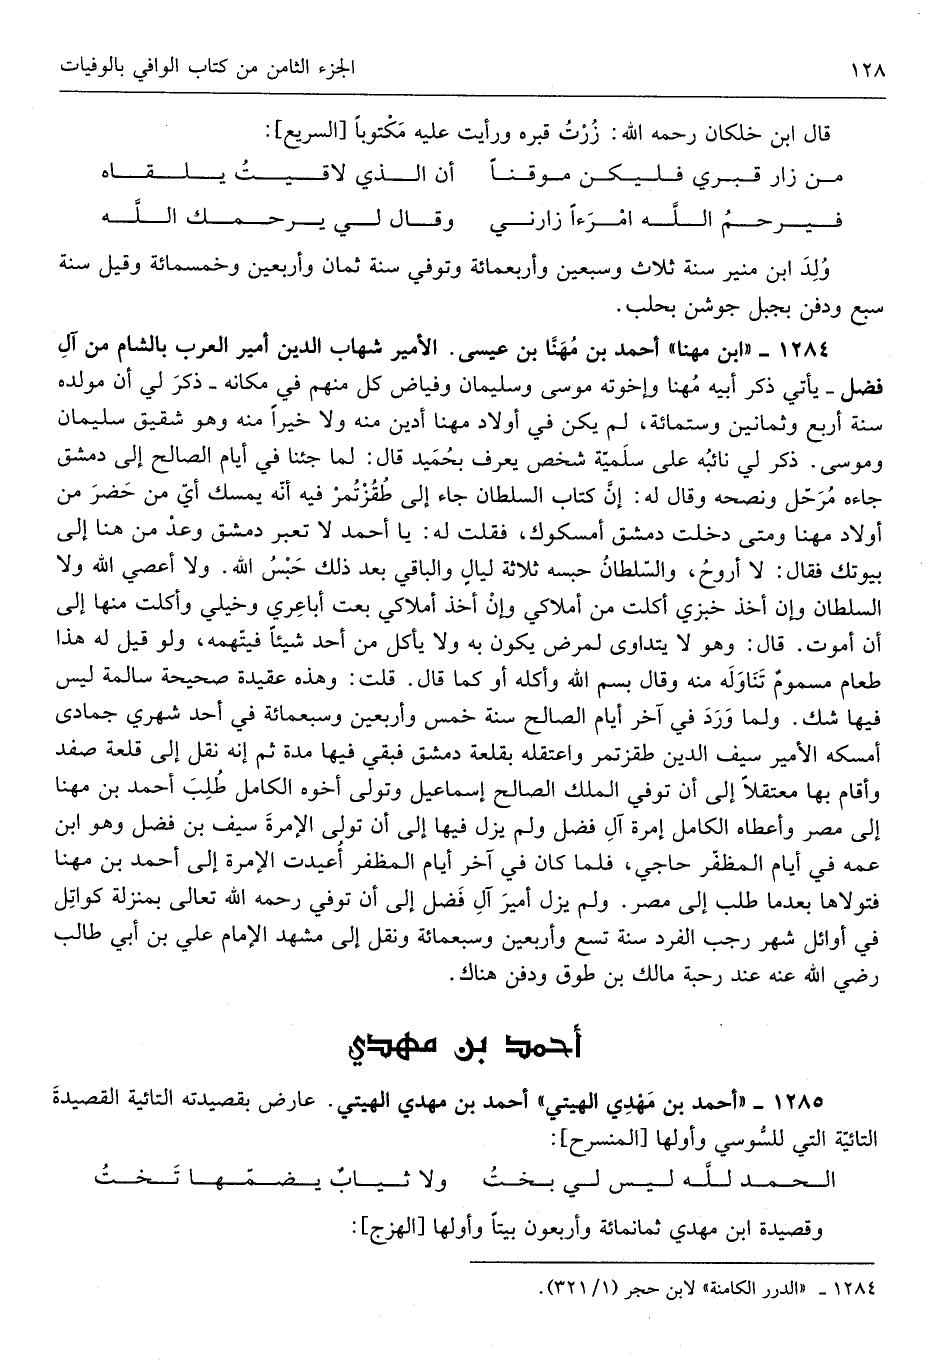 ١٢٨ الجزء الثامن من كتاب الوافي بالوفيات
قال ابن خلكان رحمه الله: زُرْتُ قبره ورأيت عليه مَكْتوباً [السريع]:
مـن زار قـبـري فـلـيـكـن مـوقـنـاً أن الـذي لاقـيـتُ يـلـقـاه
فـيـرحـمُ الـلَّـه امْـرَءاً زارنـي وقـال لـي يـرحـمـك الـلَّـه
وُلِدَ ابن منير سنة ثلاث وسبعين وأربعمائة وتوفي سنة ثمان وأربعين وخمسمائة وقيل سنة
سبع ودفن بجبل جوشن بحلب.
١٢٨٤ ـ «ابن مهنا» أحمد بن مُهَنَّا بن عيسى. الأمير شهاب الدين أمير العرب بالشام من آلِ
فضل ـ يأتي ذكر أبيه مُهنا وإخوته موسى وسليمان وفياض كل منهم في مكانه ـ ذكرَ لي أن مولده
سنة أربع وثمانين وستمائة، لم يكن في أولاد مهنا أدين منه ولا خيراً منه وهو شقيق سليمان
وموسى. ذكر لي نائبُه على سلَميّة شخص يعرف بحُمَيد قال: لما جئنا في أيام الصالح إلى دمشق
جاءه مُرَحّل ونصحه وقال له: إنَّ كتاب السلطان جاء إلى طُقُزْتُمرْ فيه أنّه يمسك أيّ من حَضرَ من
أولاد مهنا ومتى دخلت دمشق أمسكوك، فقلت له: يا أحمد لا تعبر دمشق وعدْ من هنا إلى
بيوتك فقال: لا أروحُ، والسّلطانُ حبسه ثلاثة ليالٍ والباقي بعد ذلك حَبْسُ الله. ولا أعصي الله ولا
السلطان وإن أخذ خبزي أكلت من أملاكي وإنْ أخذ أملاكي بعت أباعِري وخيلي وأكلت منها إلى
أن أموت. قال: وهو لا يتداوى لمرض يكون به ولا يأكل من أحد شيئاً فيتّهمه، ولو قيل له هذا
طعام مسمومٌ تَنَاوَلَه منه وقال بسم الله وأكله أو كما قال. قلت: وهذه عقيدة صحيحة سالمة ليس
فيها شك. ولما وَرَدَ في آخر أيام الصالح سنة خمس وأربعين وسبعمائة في أحد شهري جمادى
أمسكه الأمير سيف الدين طقزتمر واعتقله بقلعة دمشق فبقي فيها مدة ثم إنه نقل إلى قلعة صفد
وأقام بها معتقلاً إلى أن توفي الملك الصالح إسماعيل وتولى أخوه الكامل طُلِبَ أحمد بن مهنا
إلى مصر وأعطاه الكامل إمرة آلِ فضل ولم يزل فيها إلى أن تولى الإمرةَ سيف بن فضل وهو ابن
عمه في أيام المظفّر حاجي، فلما كان في آخر أيام المظفر أُعيدت الإمرة إلى أحمد بن مهنا
فتولاها بعدما طلب إلى مصر. ولم يزل أميرَ آلِ فَضل إلى أن توفي رحمه الله تعالى بمنزلة كواتِل
في أوائل شهر رجب الفرد سنة تسع وأربعين وسبعمائة ونقل إلى مشهد الإمام علي بن أبي طالب
رضي الله عنه عند رحبة مالك بن طوق ودفن هناك.
أحمد بن مهدي
١٢٨٥ ـ «أحمد بن مَهْدِي الهيتي» أحمد بن مهدي الهيتي. عارض بقصيدته التائية القصيدةَ
التائيّة التي للسُّوسي وأولها [المنسرح]:
الـحـمـد لـلَّـه لـيـس لـي بـخـتُ ولا ثـيـابٌ يـضـمّـهـا تَـخـتُ
وقصيدة ابن مهدي ثمانمائة وأربعون بيتاً وأولها [الهزج]:
١٢٨٤ ـ «الدرر الكامنة» لابن حجر (١/ ٣٢١).